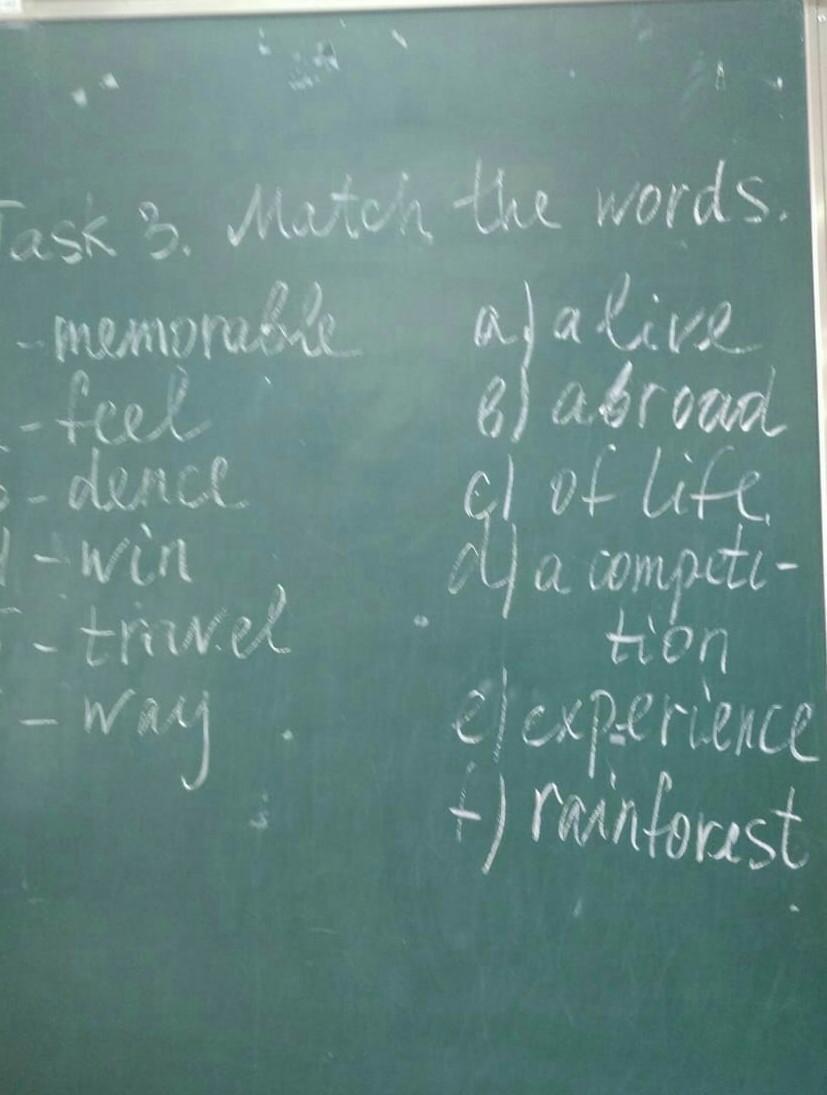 Task 3. Match the words.
- memorable a) alive
- feel b) abroad
- dence c) of life
- win d) a competi-
tion
- travel
- way e) experience
f) rainforest